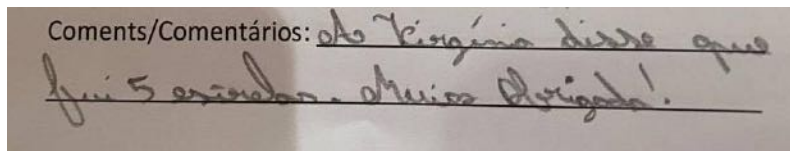 Coments/Comentários: A Virgínia disse que
fui 5 estrelas. Muito Obrigada!